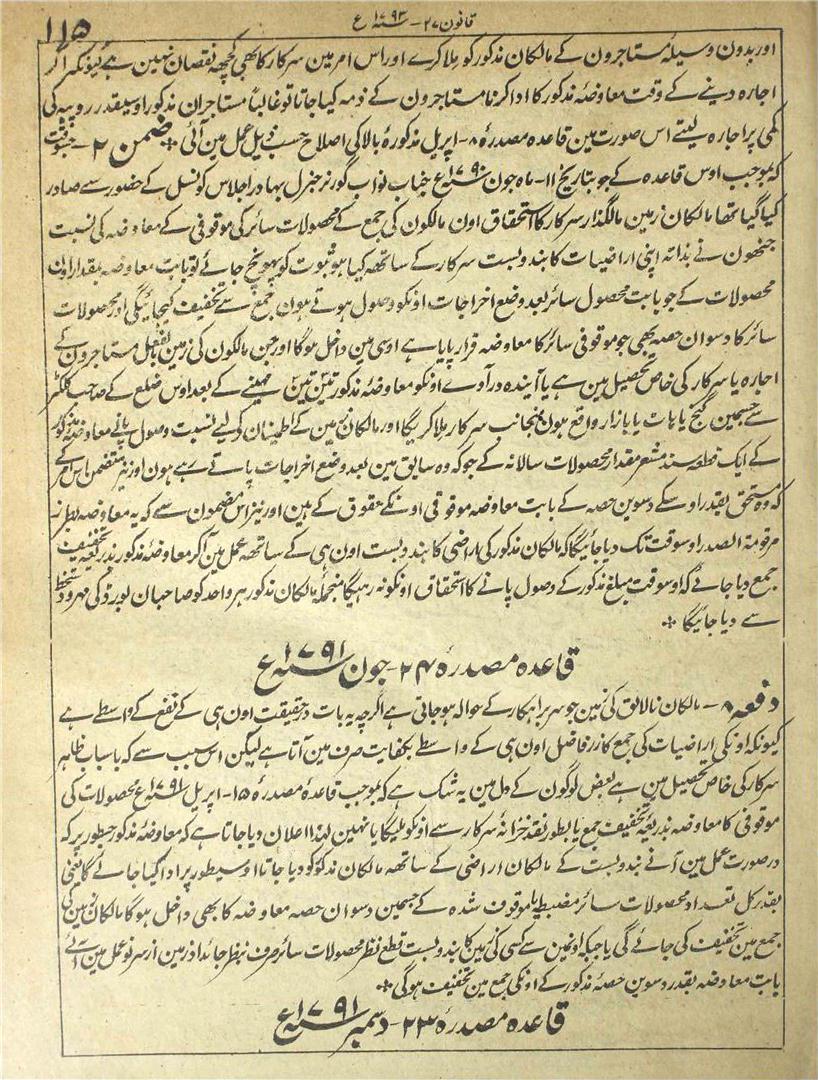 ۱۱۵
قانون ۲۷ - سنہ ۱۷۹۳ ع
اور بدون وسیلۂ مستاجرون کے مالکان مذکور کو ملا کرے اور اس امر مین سرکار کا بھی کچھہ نقصان نہین ہے کیونکہ اگر
اجارہ دینے کے وقت معاوضۂ مذکور کا ادا کرنا مستاجرون کے ذمہ کیا جاتا تو غالباً مستاجران مذکور اوسیقدر روپیہ کی
کمی پر اجارہ لیتے اس صورت مین قاعدہ مصدرۂ ۸ - اپریل مذکورۂ بالا کی اصلاح حسب ذیل عمل مین آئی ٭ ضمن ۲ - جسوقت
کہ بموجب اوس قاعدہ کے جو بتاریخ ۱۱ - ماہ جون سنہ ۱۷۹۰ ع جناب نواب گورنر جنرل بہادر اجلاس کونسل کے حضور سے صادر
کیا گیا تھا مالکان زمین مالگذار سرکار کا استحقاق اون مالکون کی جمع کے محصولات سائر کی موقوفی کے معاوضہ کی نسبت
جنھون نے بذاتہ اپنی اراضیات کا بندوبست سرکار کے ساتھہ کیا ہو ثبوت کو پہونچ جائے تو بابت معاوضہ بقدر اون
محصولات کے جو بابت محصول سائر بعد وضع اخراجات اونکو وصول ہوتے ہون جمع سے تخفیف کیجائیگی اور محصولات
سائر کا دسوان حصہ بھی جو موقوفی سائر کا معاوضہ قرار پایا ہے اوسی مین داخل ہوگا اور جن مالکون کی زمین بالفعل مستاجرون کے
اجارہ یا سرکار کی خاص تحصیل مین ہے یا آیندہ در آوے اونکو معاوضۂ مذکور تین تین مہینے کے بعد اوس ضلع کے صاحب کلکٹر
سے جسمین گنج یا ہات یا بازار واقع ہون منجانب سرکار ملا کریگا اور مالکان زمین کے اطمینان کے لیے نسبت وصول پانے معاوضۂ مذکور
کے ایک قطعہ سند مشعر مقدار محصولات سالانہ کے جو کہ وہ سابق مین بعد وضع اخراجات پاتے رہے ہون اور نیز متضمن اس امر کے
کہ وہ مستحق بقدر اوسکے دسوین حصہ کے بابت معاوضہ موقوفی اونکے حقوق کے ہین اور نیز اس مضمون سے کہ یہ معاوضہ بطرز
مرقومۃ الصدر اوسوقت تک دیا جائیگا کہ مالکان مذکور کی اراضی کا بندوبست اون ہی کے ساتھہ عمل مین آکر معاوضۂ مذکور بذریعہ تخفیف
جمع دیا جائے کہ اوسوقت مبلغ مذکور کے وصول پانے کا استحقاق اونکو نہ رہیگا منجملہ مالکان مذکور ہر واحد کو صاحبان بورڈ کی مہر و دستخط
سے دیا جائیگا ٭
قاعدہ مصدرۂ ۲۴ - جون سنہ ۱۷۹۱ ع
دفعہ ۸ - مالکان نالائق کی زمین جو سربراہکار کے حوالہ ہو جاتی ہے اگرچہ یہ بات درحقیقت اون ہی کے نفع کے واسطے ہے
کیونکہ اونکی اراضیات کی جمع کا زر فاضل اون ہی کے واسطے بکفایت صرف مین آتا ہے لیکن اس سبب سے کہ باسباب ظاہر
سرکار کی خاص تحصیل مین ہے بعض لوگون کے دل مین یہ شک ہے کہ بموجب قاعدہ مصدرۂ ۱۵ - اپریل سنہ ۱۷۹۱ ع محصولات کی
موقوفی کا معاوضہ بذریعہ تخفیف جمع یا بطور نقد خزانۂ سرکار سے اونکو ملیگا یا نہین لہذا اعلان دیا جاتا ہے کہ معاوضۂ مذکور جسطور پر کہ
درصورت عمل مین آنے بندوبست کے مالکان اراضی کے ساتھہ مالکان مذکور کو دیا جاتا اوسیطور پر ادا کیا جائے گا یعنی
بقدر کل تعداد محصولات سائر منضبط یا موقوف شدہ کے جسمین دسوان حصہ معاوضہ کا بھی داخل ہوگا مالکان زمین کی
جمع مین تخفیف کی جائے گی یا جبکہ اونمین سے کسی کی زمین کا بندوبست قطع نظر محصولات سائر صرف بنظر جائداد زمین از سر نو عمل مین آئے
بابت معاوضہ بقدر دسوین حصۂ مذکور کے اونکی جمع مین تخفیف ہوگی ٭
قاعدہ مصدرۂ ۲۳ - دسمبر سنہ ۱۷۹۱ ع